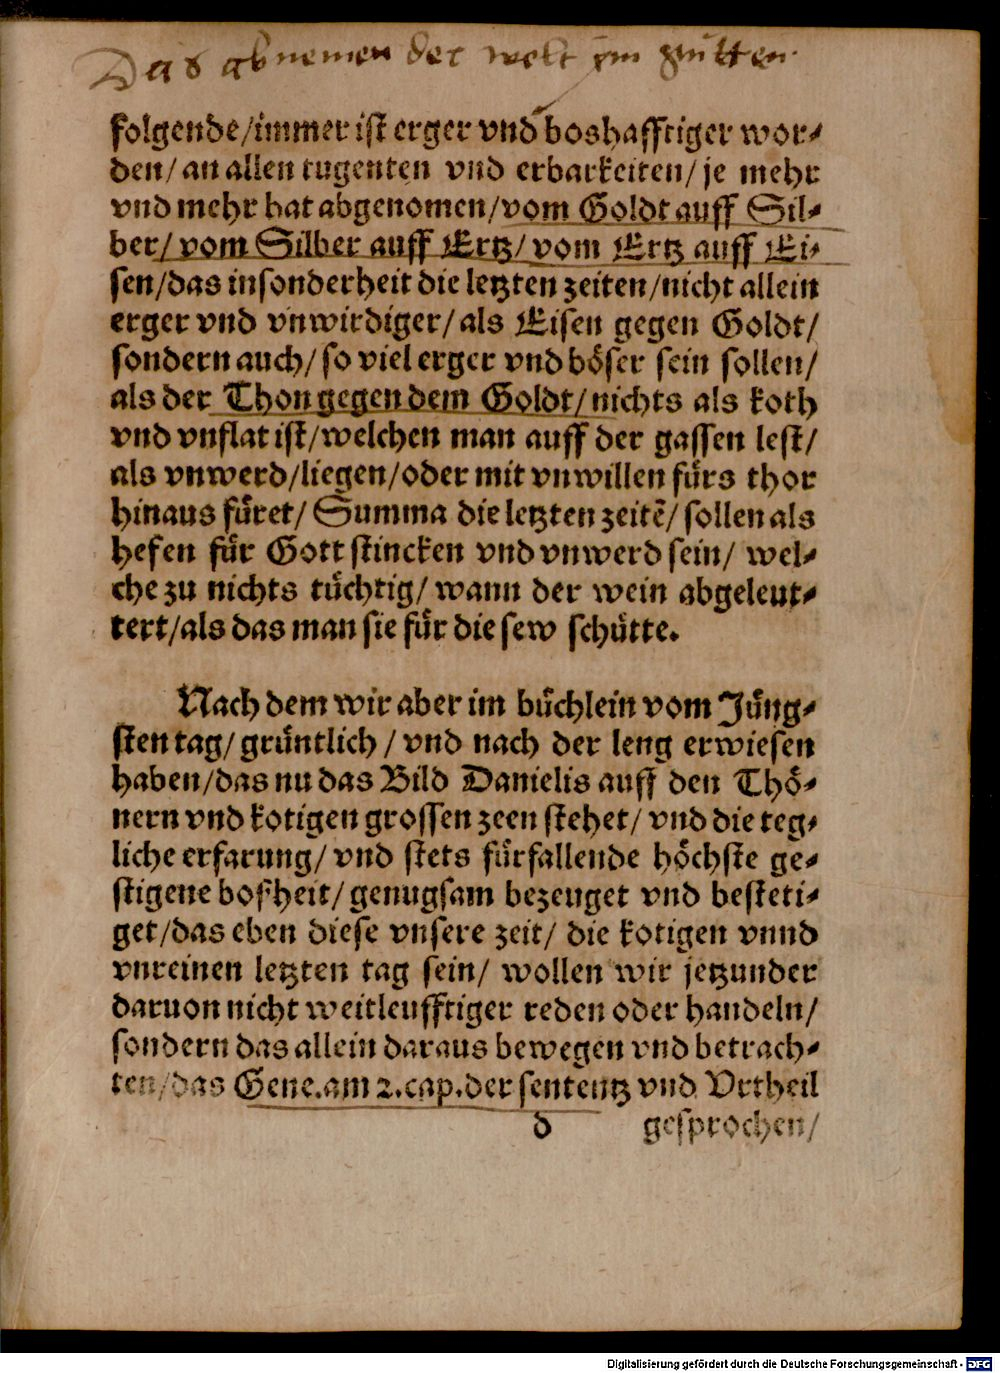 Das abnemen der welt im
folgende/immer ist erger vnd boshafftiger wor-
den/ an allen tugenten vnd erbarkeiten/ je mehr
vnd mehr hat abgenomen/vom Goldt auff Sil-
ber/ vom Silber auff Ertz/ vom Ertz auff Ei-
sen/das insonderheit die letzten zeiten/nicht allein
erger vnd vnwirdiger/ als Eisen gegen Goldt/
sondern auch/ so viel erger vnd böser sein sollen/
als der Thon gegen dem Goldt/ nichts als koth
vnd vnflat ist/welchen man auff der gassen lest/
als vnwerd/liegen/oder mit vnwillen fürs thor
hinaus füret/ Summa die letzten zeitẽ/ sollen als
hefen für Gott stincken vnd vnwerd sein/ wel-
che zu nichts tüchtig/ wann der wein abgeleut-
tert/als das man sie für die sew schütte.
Nach dem wir aber im büchlein vom Jüng-
sten tag/ gründtlich / vnd nach der leng erwiesen
haben/das nu das Bild Danielis auff den Thö-
nern vnd kotigen grossen zeen stehet/ vnd die teg-
liche erfarung/ vnd stets fürfallende höchste ge-
stigene boßheit/ genugsam bezeuget vnd besteti-
get/das eben diese vnsere zeit/ die kotigen vnnd
vnreinen letzten tag sein/ wollen wir jetzunder
daruon nicht weitleufftiger reden oder handeln/
sondern das allein daraus bewegen vnd betrach-
ten/das Gene.am 2.cap.der sententz vnd Vrtheil
d gesprochen/
Digitalisierung gefördert durch die Deutsche Forschungsgemeinschaft - DFG